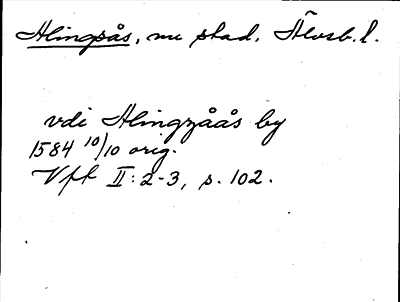 Alingsås, nu stad, Älvsb. l.
vdi Alingzåås by
1584 10/10 orig.
Vft II: 2-3, s. 102.